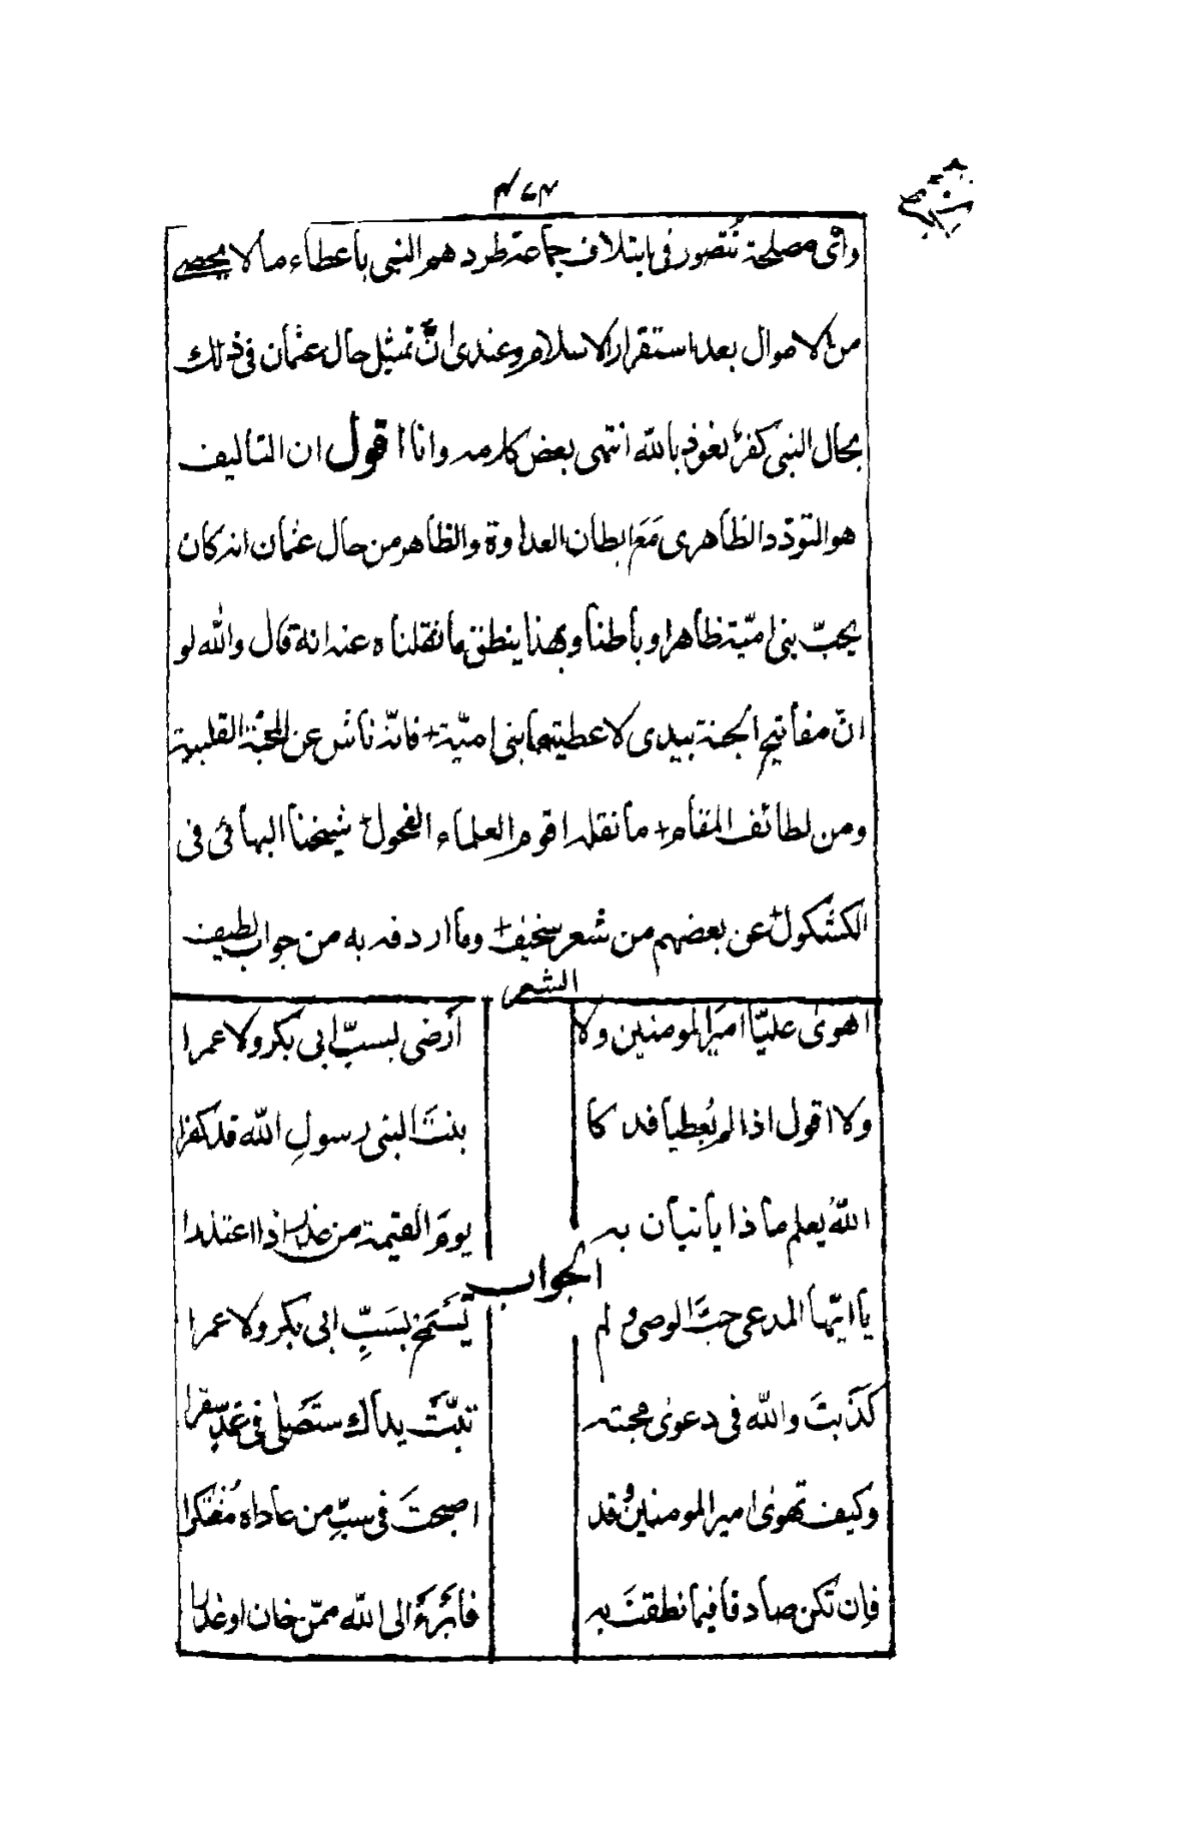 وائ مصلحة تُتصور فی ایتلاف جماعة طردهم النبی باعطاء ما لا یحصے
من الاموال بعد استقرار الاسلام وعندی انّ تمثیل حال عثمان فی ذلك
بحال النبی کفر نعوذ بالله انتهی بعض کلامه وانا اقول ان التالیف
هو التودّد الظاهری مَعَ ابطان العداوة والظاهر من حال عثمان انه کان
یحبّ بنی امیّة ظاهرا وباطنا وبهذا ینطق ما نقلناه عنه انه قال والله لو
انّ مفاتیح الجنة بیدی لاعطیتها بنی امیّة فانّه ناش عن المحبّة القلبیة
ومن لطائف المقام ما نقله اقوم العلماء الفحول شیخنا البهائی فی
الکشکول عن بعضهم من شعر سخیف وما اردفه به من جواب لطیف
الشعر
اهوٰی علیّا امیر المومنین ولا أرضی لسبّ ابی بکر ولا عمرا
ولا اقول اذا لم یُعطیا فدکا بنتَ النبی رسولِ الله قد کفرا
اللهُ یعلم ماذا یأتیان به یومَ القیمة من عذر اذا اعتذرا
الجواب
یا ایّها المدعی حبَّ الوصی ولم تَسْمَح بسَبِّ ابی بکر ولا عمرا
کَذَبتَ والله فی دعوٰی محبته تبّتْ یداك ستَصلٰی فی غدٍ سقرا
وکیف تهوٰی امیر المومنین وقد اصبحتَ فی سبِّ من عاداه مُفتکرا
فإن تکن صادقا فیما نطقتَ به فابرَءْ الی الله ممّن خان او غدرا